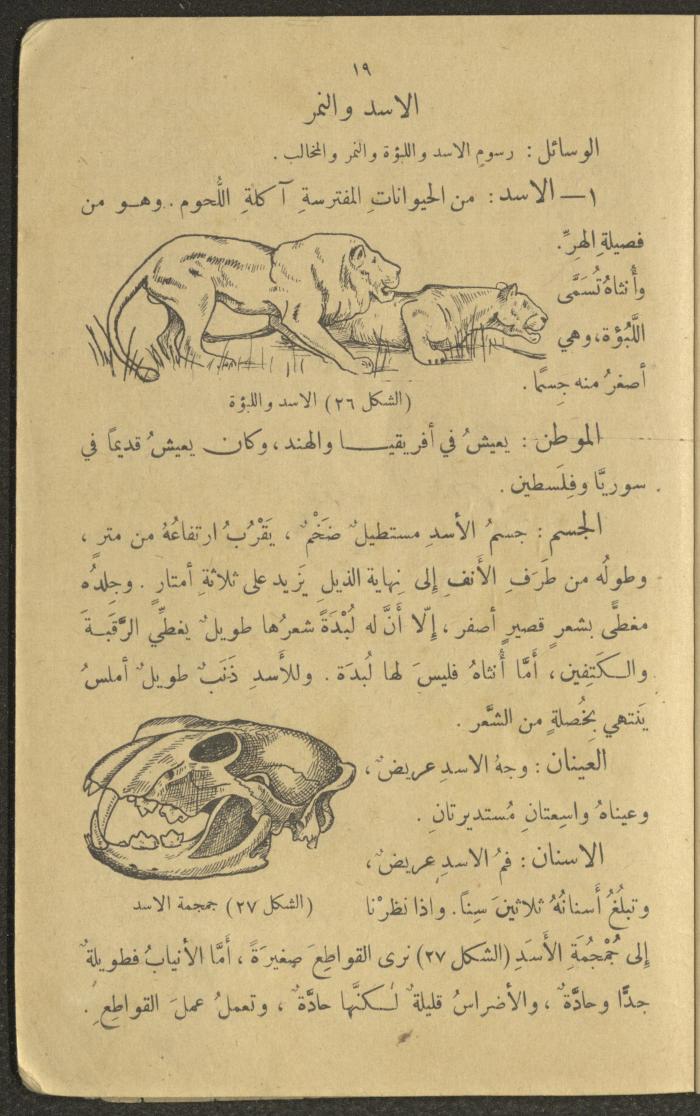 ١٩
الاسد والنمر
الوسائل : رسوم الاسد واللبؤة والنمر والمخالب .
١ — الاسد : من الحيواناتِ المفترسةِ آكلةِ اللُّحوم . وهو من
فصيلةِ الهرِّ .
وأُنثاهُ تُسَمَّى
اللَّبُؤة ، وهي
أصغرُ منه جِسمًا .
(الشكل ٢٦) الاسد واللبؤة
الموطن : يعيشُ في أفريقيا والهند ، وكان يعيشُ قديماً في
سوريَّا وفِلَسطين .
الجسم : جسمُ الأسدِ مستطيلٌ ضَخْمٌ ، يَقْرُبُ ارتفاعُهُ من مترٍ ،
وطولُه من طَرَفِ الأَنفِ إِلى نِهاية الذيلِ يَزيد على ثلاثةِ أمتارٍ . وجِلدُه
مغطًّى بشعرٍ قصيرٍ أصفر ، إِلّا أَنَّ له لُبْدَةً شعرُها طويلٌ يغطِّي الرَّقَبةَ
والكَتِفين ، أمَّا أُنثاهُ فليسَ لها لُبدَة . وللأَسدِ ذَنَبٌ طويلٌ أملسُ
يَنتهي بِخُصلةٍ من الشَّعر .
العينان : وجهُ الاسدِ عريضٌ ،
وعيناهُ واسِعتانِ مُستديرتانِ .
الاسنان : فمُ الاسدِ عريضٌ ،
وتبلُغُ أَسنانُهُ ثلاثينَ سِنّاً . واذا نظرْنا
(الشكل ٢٧) جمجمة الاسد
إِلى جُمْجُمَةِ الأَسَدِ (الشكل ٢٧) نرى القواطِعَ صغيرَةً ، أمَّا الأنيابُ فطويلةٌ
جدًّا وحادَّةٌ ، والأضراسُ قليلةٌ لكنَّها حادَّةٌ ، وتعملُ عملَ القواطِعِ .